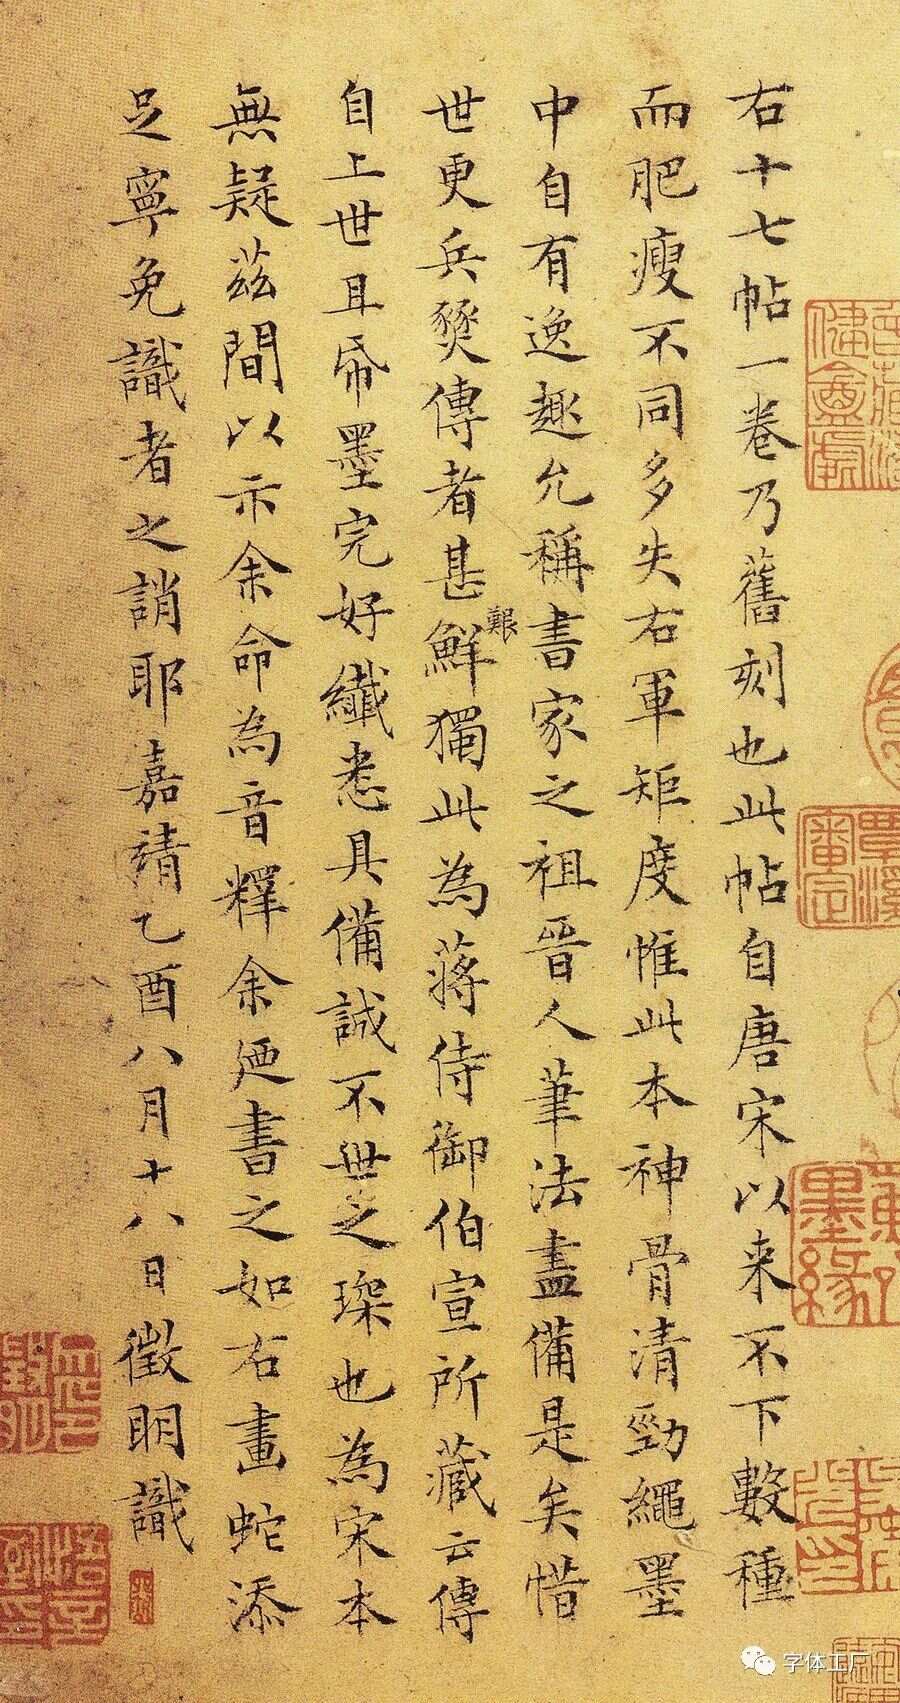 右十七帖一卷乃舊刻也此帖自唐宋以来不下數種
而肥瘦不同多失右軍矩度惟此本神骨清勁繩墨
中自有逸趣允稱書家之祖晉人筆法盡備是矣惜
世更兵燹傳者甚鮮獨此為蔣侍御伯宣所藏云傳
艱
自上世且帋墨完好纖悉具備誠不世之琛也為宋本
無疑茲間以示余命為音釋余廼書之如右畫蛇添
足寧免識者之誚耶嘉靖乙酉八月十八日徵明識
墨緣
審定
字体工厂